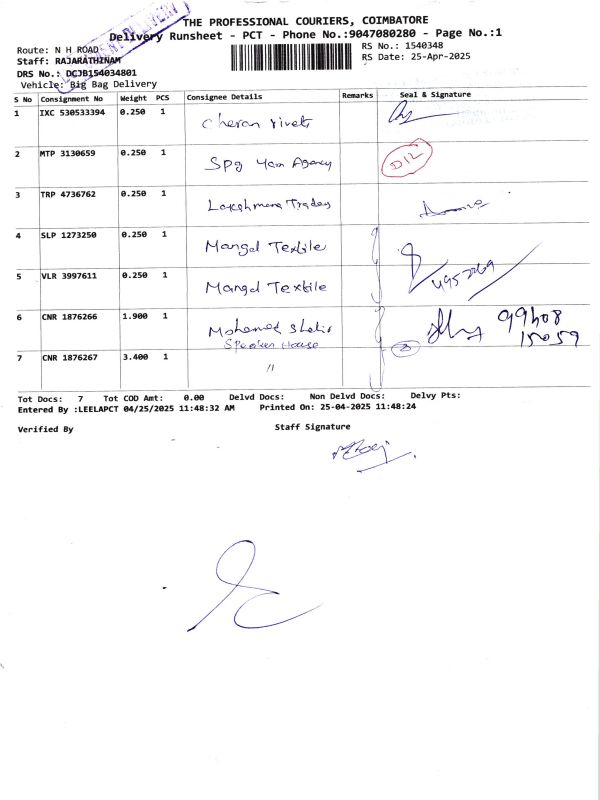 THE PROFESSIONAL COURIERS, COIMBATORE
Delivery Runsheet - PCT - Phone No.:9047080280 - Page No.:1
Route: N H ROAD
RS No.: 1540348
Staff: RAJARATHINAM
RS Date: 25-Apr-2025
DRS No.: DCJB154034801
Vehicle: Big Bag Delivery
S No Consignment No Weight PCS Consignee Details Remarks Seal & Signature
1 IXC 530533394 0.250 1 Cheran rivets
2 MTP 3130659 0.250 1 Spg Yarn Agency D12
3 TRP 4736762 0.250 1 Lakshmana Traders
4 SLP 1273250 0.250 1 Mangal Textile
5 VLR 3997611 0.250 1 Mangal Textile
6 CNR 1876266 1.900 1 Mohamed 99408
Speaker House 15059
7 CNR 1876267 3.400 1 "
Tot Docs: 7 Tot COD Amt: 0.00 Delvd Docs: Non Delvd Docs: Delvy Pts:
Entered By :LEELAPCT 04/25/2025 11:48:32 AM Printed On: 25-04-2025 11:48:24
Verified By Staff Signature